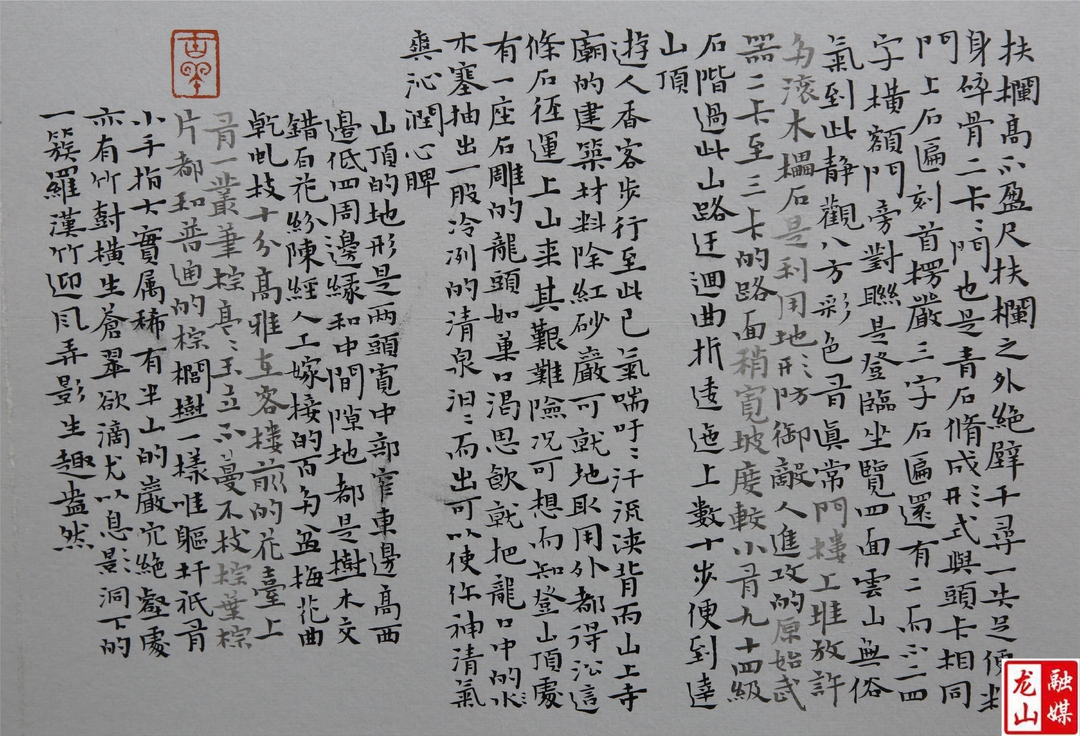 扶欄高不盈尺扶欄之外絶壁千尋一失足便粉
身碎骨二卡〻門也是青石脩成〻〻形式與頭卡相同
門上石匾刻首楞嚴三字石匾還有二而不二四
字橫額門旁對聯是登臨坐覽四面雲山無俗
氣到此静觀八方彩色有真常門樓上堆放許
多滚木櫑石是利用地形〻防御敵人進攻的原始武
器二卡至三卡的路面稍寬坡度較小有九十四級
石階過此山路迂迴曲折逶迤上數十步便到達
山頂
遊人香客步行至此已氣喘吁〻汗流浹背而山上寺
廟的建築材料除紅砂巖可就地取用外都得㳂這
條石徑運上山来其艱難險况可想而知登山頂處
有一座石雕的龍頭如菓口渴思飲就把龍口中的水
木塞抽出一股冷冽的清泉汩〻而出可以使你神清氣
爽沁潤心脾
山頂的地形是兩頭寬中部窄車邊高西
邊低四周邊緣和中間隙地都是樹木交
錯百花紛陳經人工嫁接的百多盆梅花曲
乾虬枝十分高雅在客樓前的花臺上
有一叢筆棕亭〻玉立不蔓不枝棕葉棕
片都和普通的棕櫚樹一樣唯軀杆衹有
小手指大實属稀有半山的巖穴絶壑處
亦有竹對橫生蒼翠欲滴尤以息影〻洞下的
一簇羅漢竹迎風弄影生趣盎然
龙山
融媒